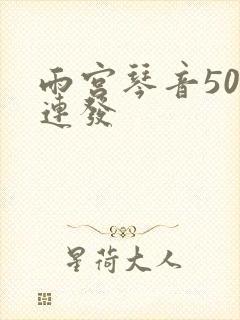 雨宮琴音50
連發
星荷大人